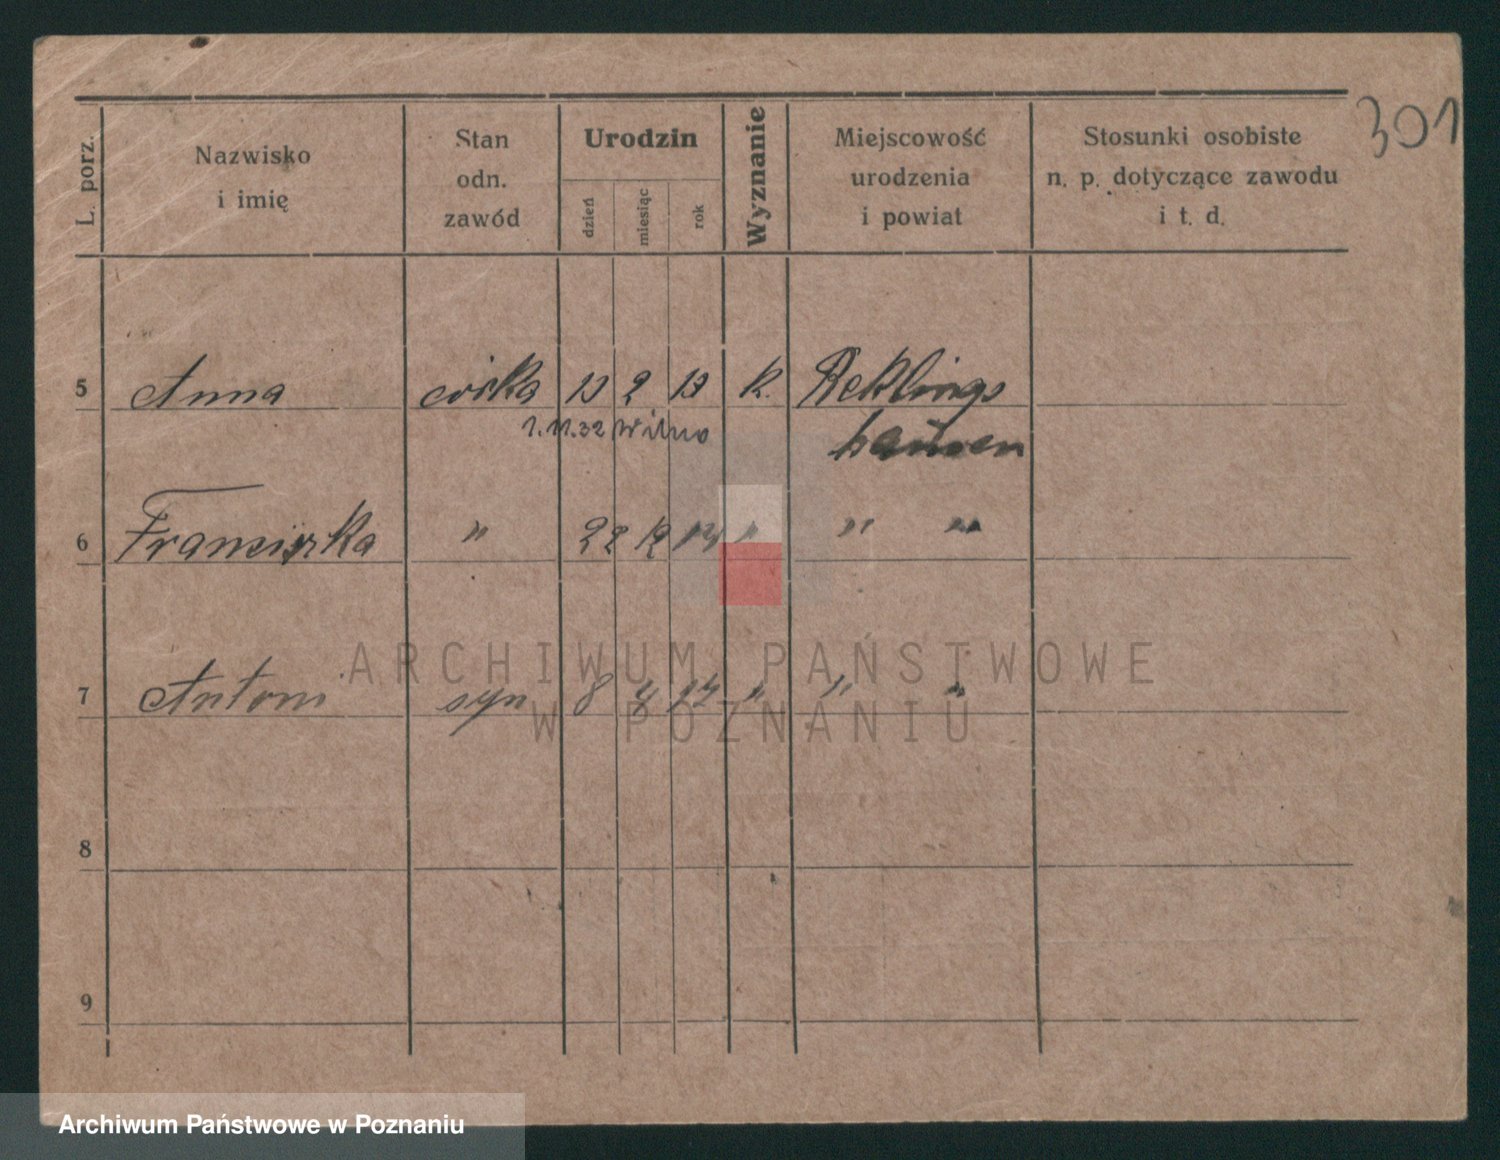 301
L. porz.
Nazwisko
i imię
Stan
odn.
zawód
Urodzin
dzień
miesiąc
rok
Wyznanie
Miejscowość
urodzenia
i powiat
Stosunki osobiste
n. p. dotyczące zawodu
i t. d.
5 Anna córka 2 k. Reklings
1.11.32 Wilno hausen
6 Franciszka " 22 12 " " "
7 Antoni syn 8 " " "
8
9
ARCHIWUM PAŃSTWOWE
W POZNANIU
Archiwum Państwowe w Poznaniu